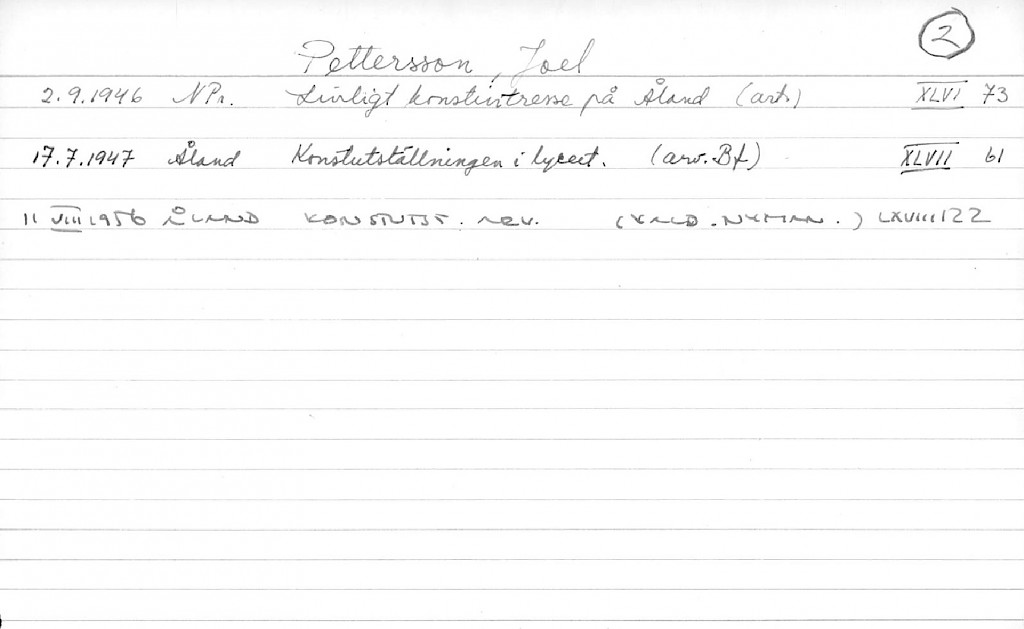 2
Pettersson, Joel
2.9.1946 NPr. Livligt konstintresse på Åland (art.) XLVI 73
17.7.1947 Åland Konstutställningen i lyceet. (arv. Bf) XLVII 61
11 VIII 1956 ÅLAND KONSTUTST. REV. (VALD. NYMAN.) LXVIII 122